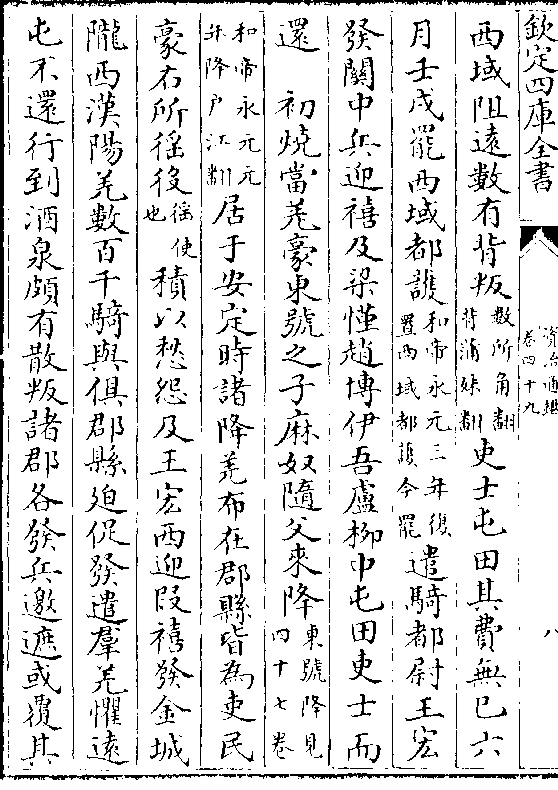 欽定四庫全書
資治通鑑
卷四十九
八
西域阻遠數有背叛數所角翻背蒲妹翻吏士屯田其費無已六
月壬戌罷西域都護和帝永元三年復置西域都護今罷遣騎都尉王宏
發關中兵迎禧及梁慬趙博伊吾盧柳中屯田吏士而
還　初燒當羌豪東號之子麻奴隨父來降東號降見四十七卷
和帝永元元年降户江翻居于安定時諸降羌布在郡縣皆為吏民
豪右所徭役徭使也積以愁怨及王宏西迎叚禧發金城
隴西漢陽羌數百千騎與俱郡縣廹促發遣羣羌懼遠
屯不還行到酒泉頗有散叛諸郡各發兵邀遮或覆其